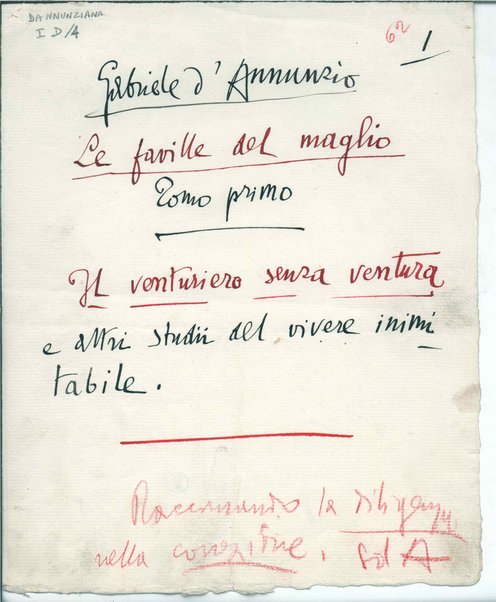 DANNUNZIANA
I D/4
1
Gabriele d'Annunzio
Le faville del maglio
Tomo primo
Il venturiero senza ventura
e altri studii del vivere inimi
tabile.
Raccomando la diligenza
nella correzione. GdA